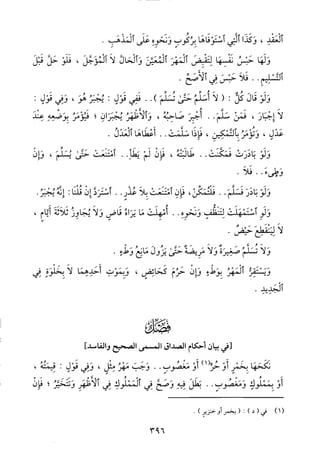 العَقْدِ ، وَكَذَا الَّتِي اسْتَوْفَاهَا بِرُكُوبٍ وَنَحْوِهِ عَلَى الْمَذْهَبِ .
وَلَهَا حَبْسُ نَفْسِهَا لِتَقْبِضَ الْمَهْرَ الْمُعَيَّنَ وَالْحَالَّ لاَ الْمُؤَجَّلَ ، فَلَوْ حَلَّ قَبْلَ
التَّسْلِيمِ . . فَلاَ حَبْسَ فِي الأَصَحِّ .
وَلَوْ قَالَ كُلٌّ : ( لاَ أُسَلِّمُ حَتَّىٰ تُسَلِّمَ ) . . فَفِي قَوْلٍ : يُجْبَرُ هُوَ ، وَفِي قَوْلٍ :
لاَ إِجْبَارَ ، فَمَنْ سَلَّمَ . . أُجْبِرَ صَاحِبُهُ ، وَالأَظْهَرُ يُجْبَرَانِ ؛ فَيُؤْمَرُ بِوَضْعِهِ عِنْدَ
عَدْلٍ ، وَتُؤْمَرُ بِالتَّمْكِينِ ، فَإِذَا سَلَّمَتْ . . أَعْطَاهَا الْعَدْلُ .
وَلَوْ بَادَرَتْ فَمَكَّنَتْ . . طَالَبَتْهُ ، فَإِنْ لَمْ يَطَأْ . . امْتَنَعَتْ حَتَّىٰ يُسَلِّمَ ، وَإِنْ
وَطِىءَ . . فَلاَ .
وَلَوْ بَادَرَ فَسَلَّمَ . . فَلْتُمَكِّنْ ، فَإِنِ امْتَنَعَتْ بِلاَ عُذْرٍ . . اسْتَرَدَّ إِنْ قُلْنَا : إِنَّهُ يُجْبَرُ .
وَلَوِ اسْتَمْهَلَتْ لِتَنَظُّفٍ وَنَحْوِهِ . . أُمْهِلَتْ مَا يَرَاهُ قَاضٍ وَلاَ يُجَاوِزُ ثَلاَثَةَ أَيَّامٍ ،
لاَ لِيَنْقَطِعَ حَيْضٌ .
وَلاَ تُسَلَّمُ صَغِيرَةٌ وَلاَ مَرِيضَةٌ حَتَّىٰ يَزُولَ مَانِعُ وَطْءٍ .
وَيَسْتَقِرُّ الْمَهْرُ بِوَطْءٍ وَإِنْ حَرُمَ كَحَائِضٍ ، وَبِمَوْتِ أَحَدِهِمَا لاَ بِخَلْوَةٍ فِي
الْجَدِيدِ .
فصل
[في بيان أحكام الصداق المسمى الصحيح والفاسد]
نَكَحَهَا بِخَمْرٍ أَوْ حُرٍّ (١) أَوْ مَغْصُوبٍ . . وَجَبَ مَهْرُ مِثْلٍ ، وَفِي قَوْلٍ : قِيمَتُهُ ،
أَوْ بِمَمْلُوكٍ وَمَغْصُوبٍ . . بَطَلَ فِيهِ وَصَحَّ فِي الْمَمْلُوكِ فِي الأَظْهَرِ وَتَتَخَيَّرُ ؛ فَإِنْ
(١) في ( د ) : ( بخمر أو خنزير ) .
٣٩٦